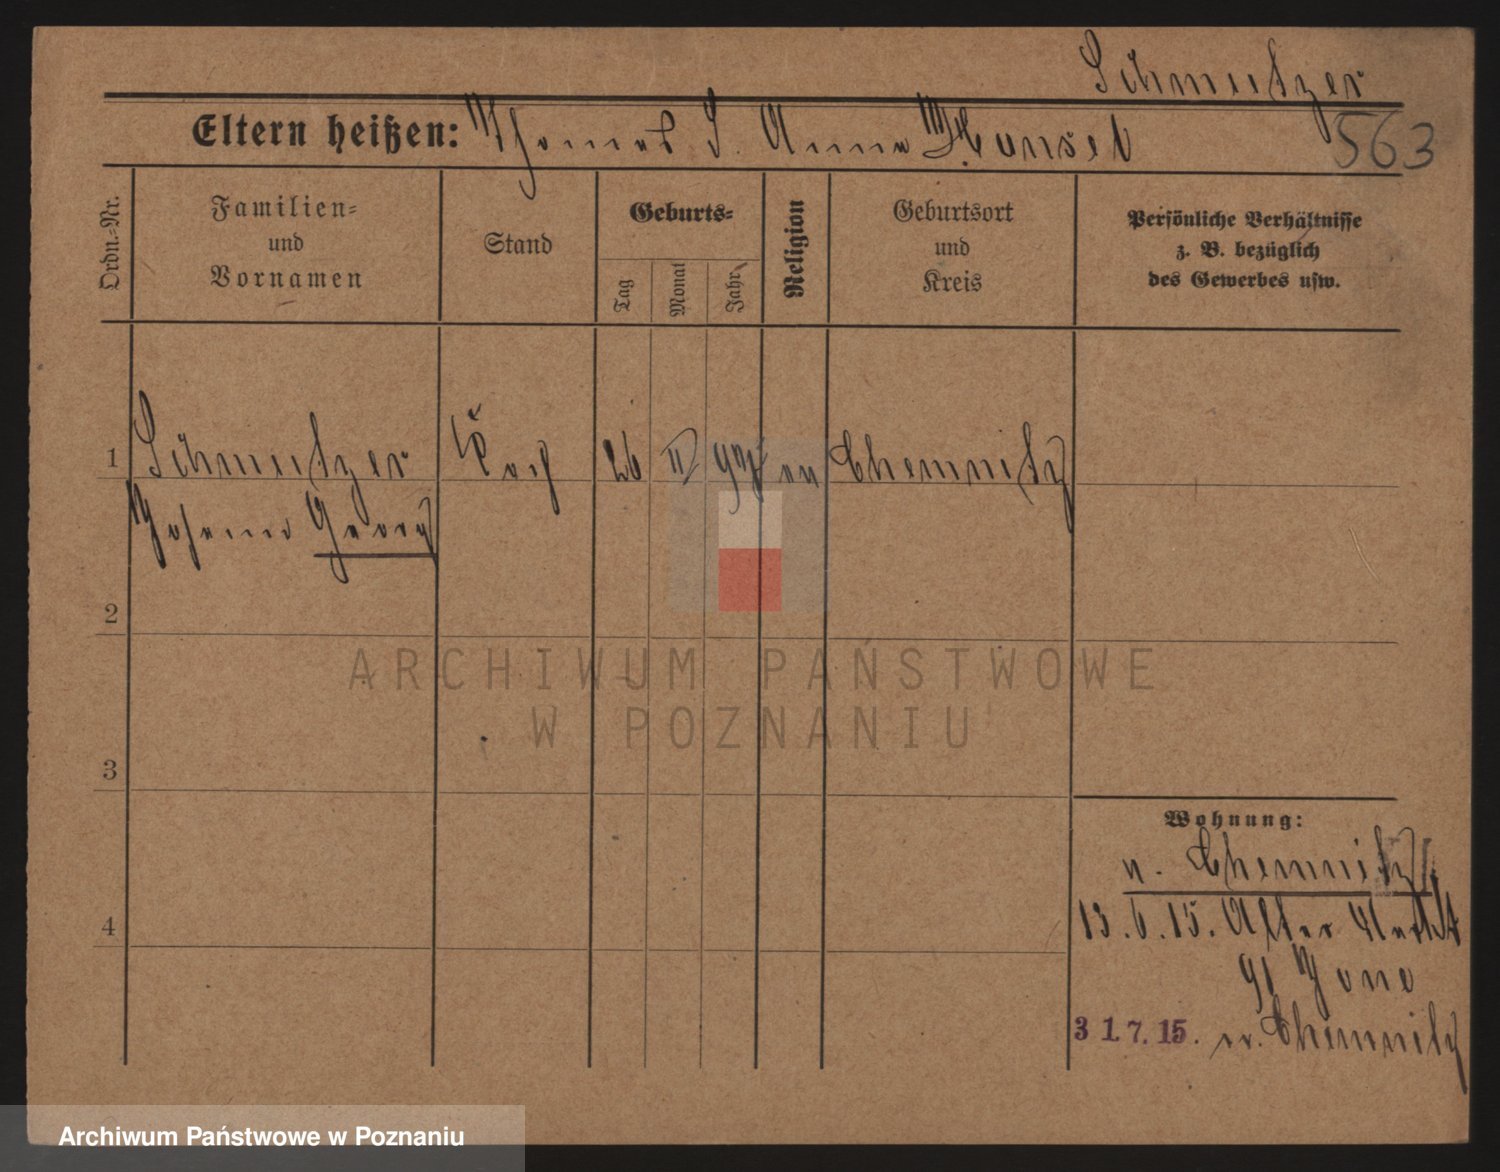 Schmeitzer
Eltern heißen: Thomas u. Anna
563
Ordn.-Nr.
Familien-
und
Vornamen
Stand
Geburts-
Tag
Monat
Jahr
Religion
Geburtsort
und
Kreis
Persönliche Verhältnisse
z. B. bezüglich
des Gewerbes usw.
1 Schmeitzer Koch 26 II 97 ev Chemnitz
Johann Georg
2
ARCHIWUM PAŃSTWOWE
W POZNANIU
3
Wohnung:
n. Chemnitz
4
13.6.15. Alter Markt
91
31.7.15. n. Chemnitz
Archiwum Państwowe w Poznaniu